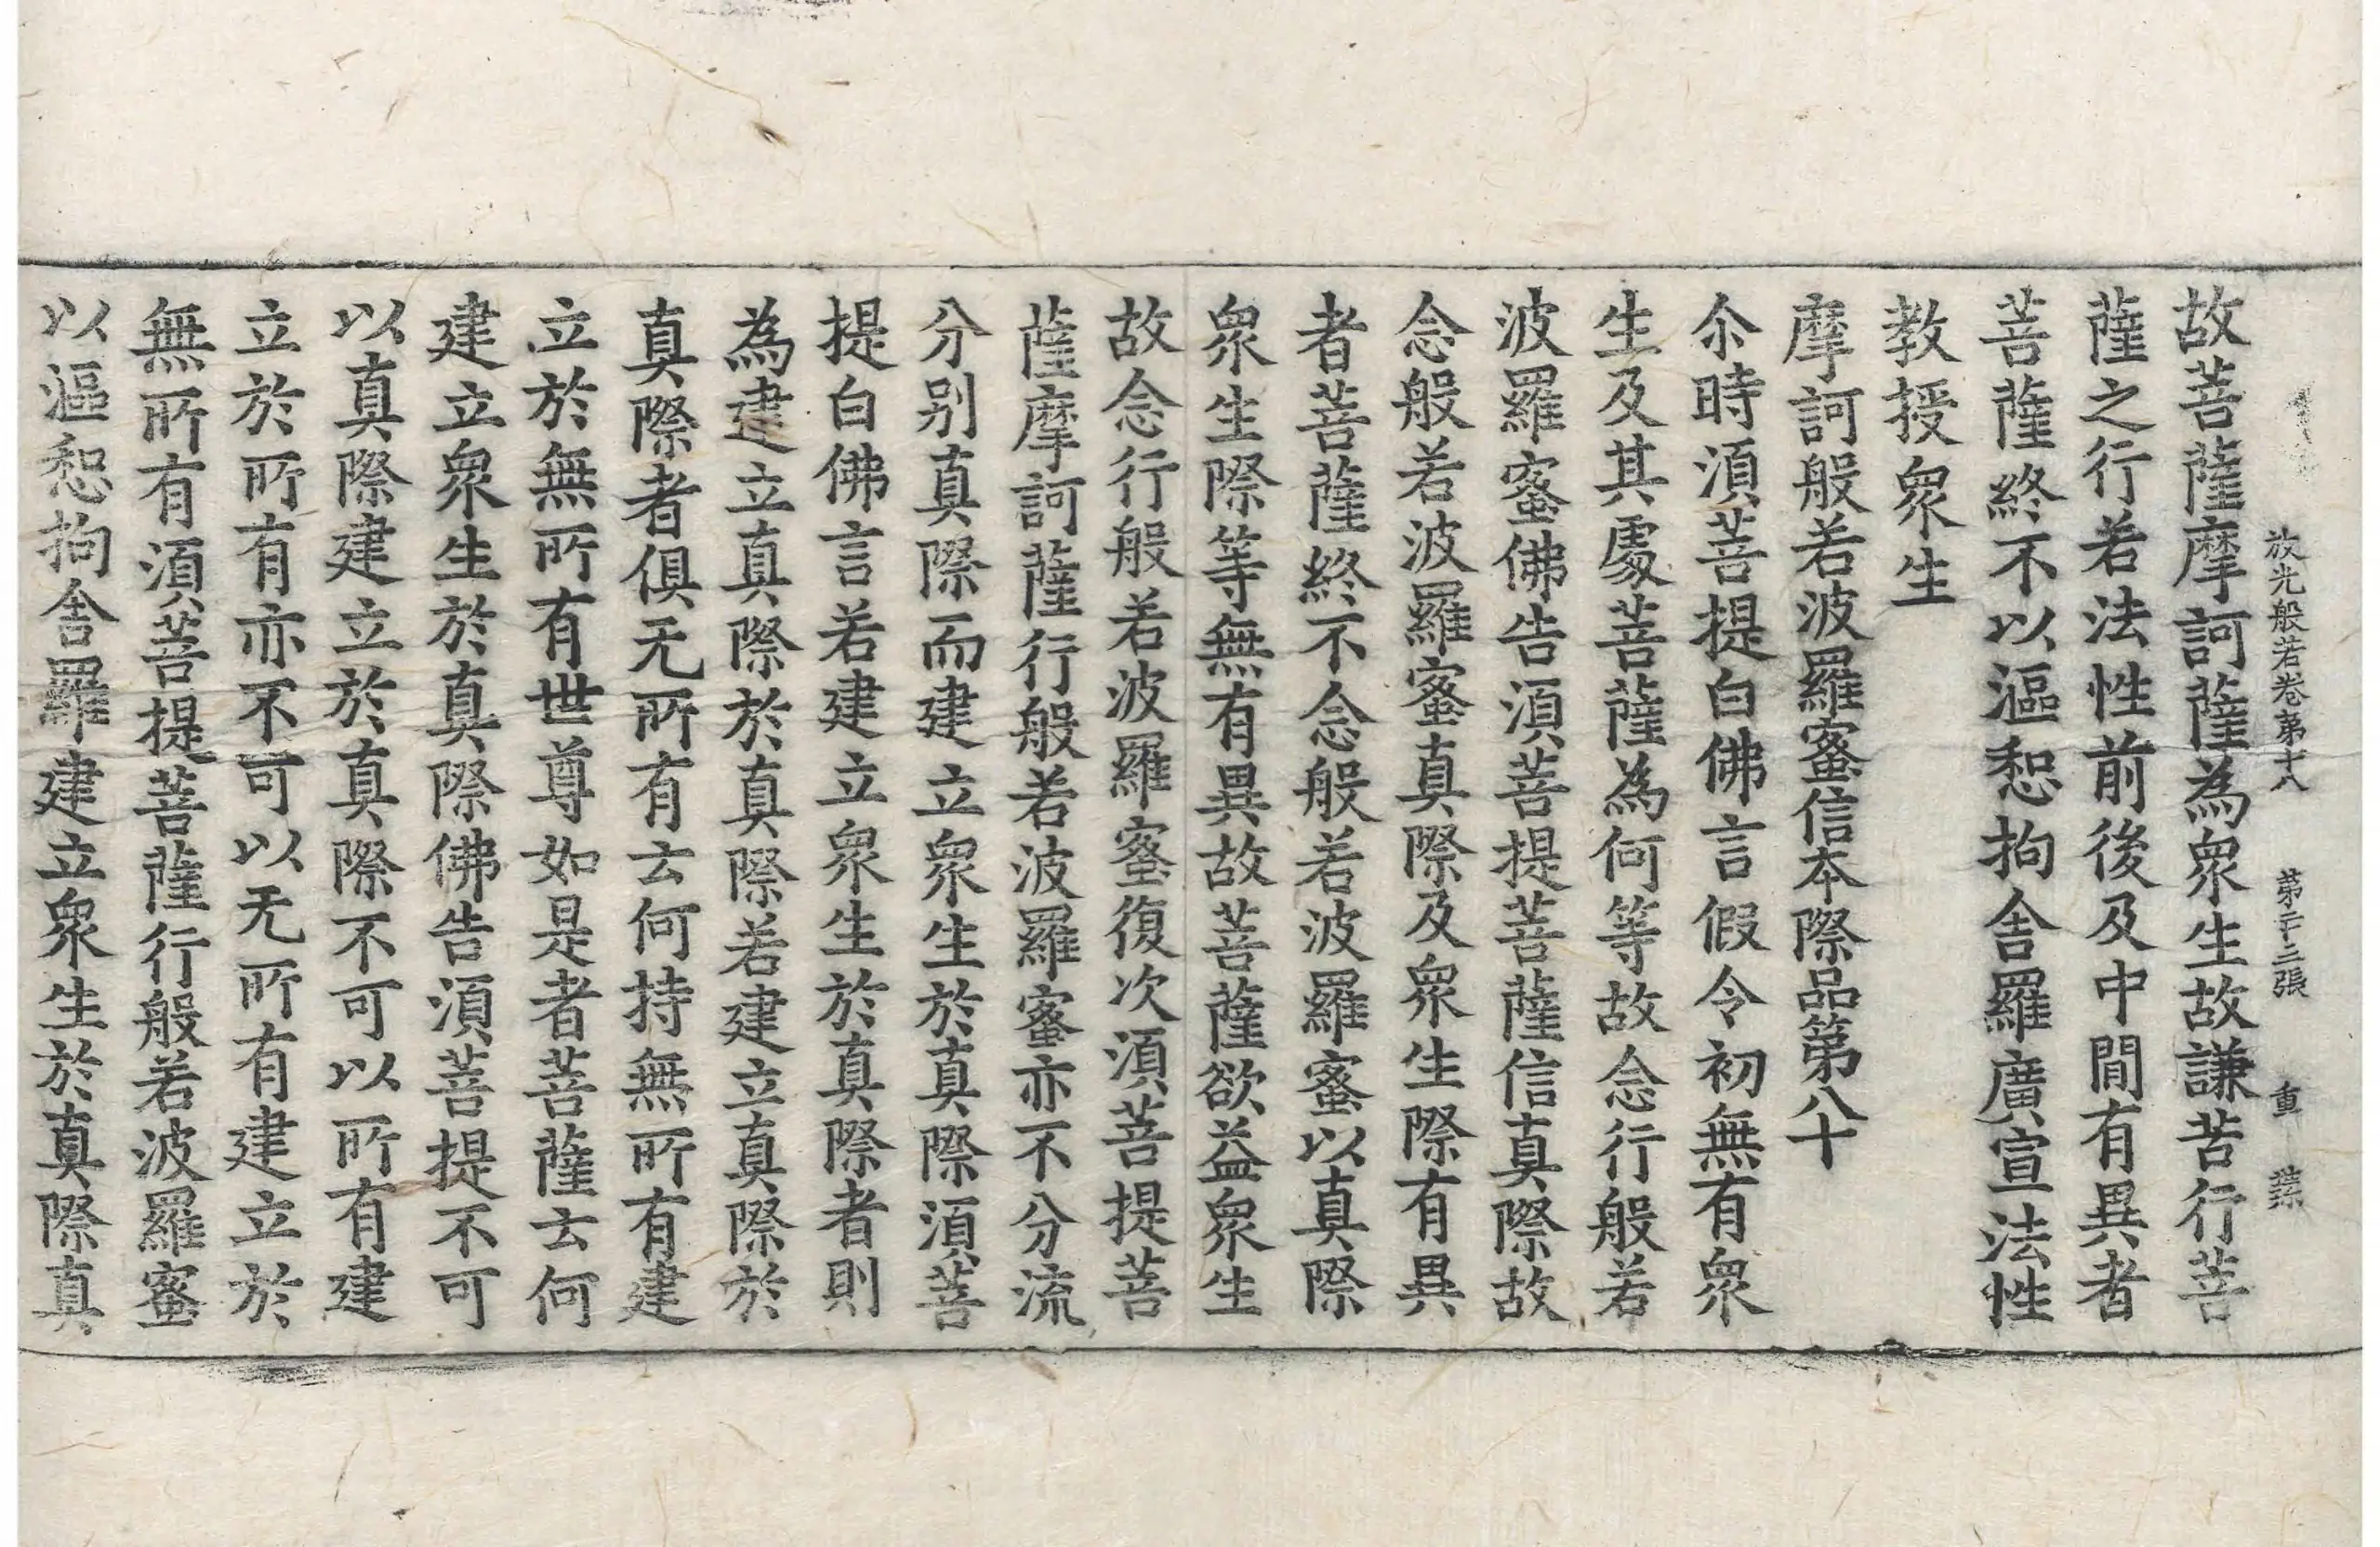 放光般若卷第十八 第二十三張 重
故菩薩摩訶薩為衆生故謙苦行菩
薩之行若法性前後及中間有異者
菩薩終不以漚惒拘舍羅廣宣法性
教授衆生
摩訶般若波羅蜜信本際品第八十
尒時湏菩提白佛言假令初無有衆
生及其處菩薩為何等故念行般若
波羅蜜佛告湏菩提菩薩信真際故
念般若波羅蜜真際及衆生際有異
者菩薩終不念般若波羅蜜以真際
衆生際等無有異故菩薩欲益衆生
故念行般若波羅蜜復次湏菩提菩
薩摩訶薩行般若波羅蜜亦不分流
分别真際而建立衆生於真際湏菩
提白佛言若建立衆生於真際者則
為建立真際於真際若建立真際於
真際者俱无所有云何持無所有建
立於無所有世尊如是者菩薩云何
建立衆生於真際佛告湏菩提不可
以真際建立於真際不可以所有建
立於所有亦不可以无所有建立於
無所有湏菩提菩薩行般若波羅蜜
以漚惒拘舍羅建立衆生於真際真